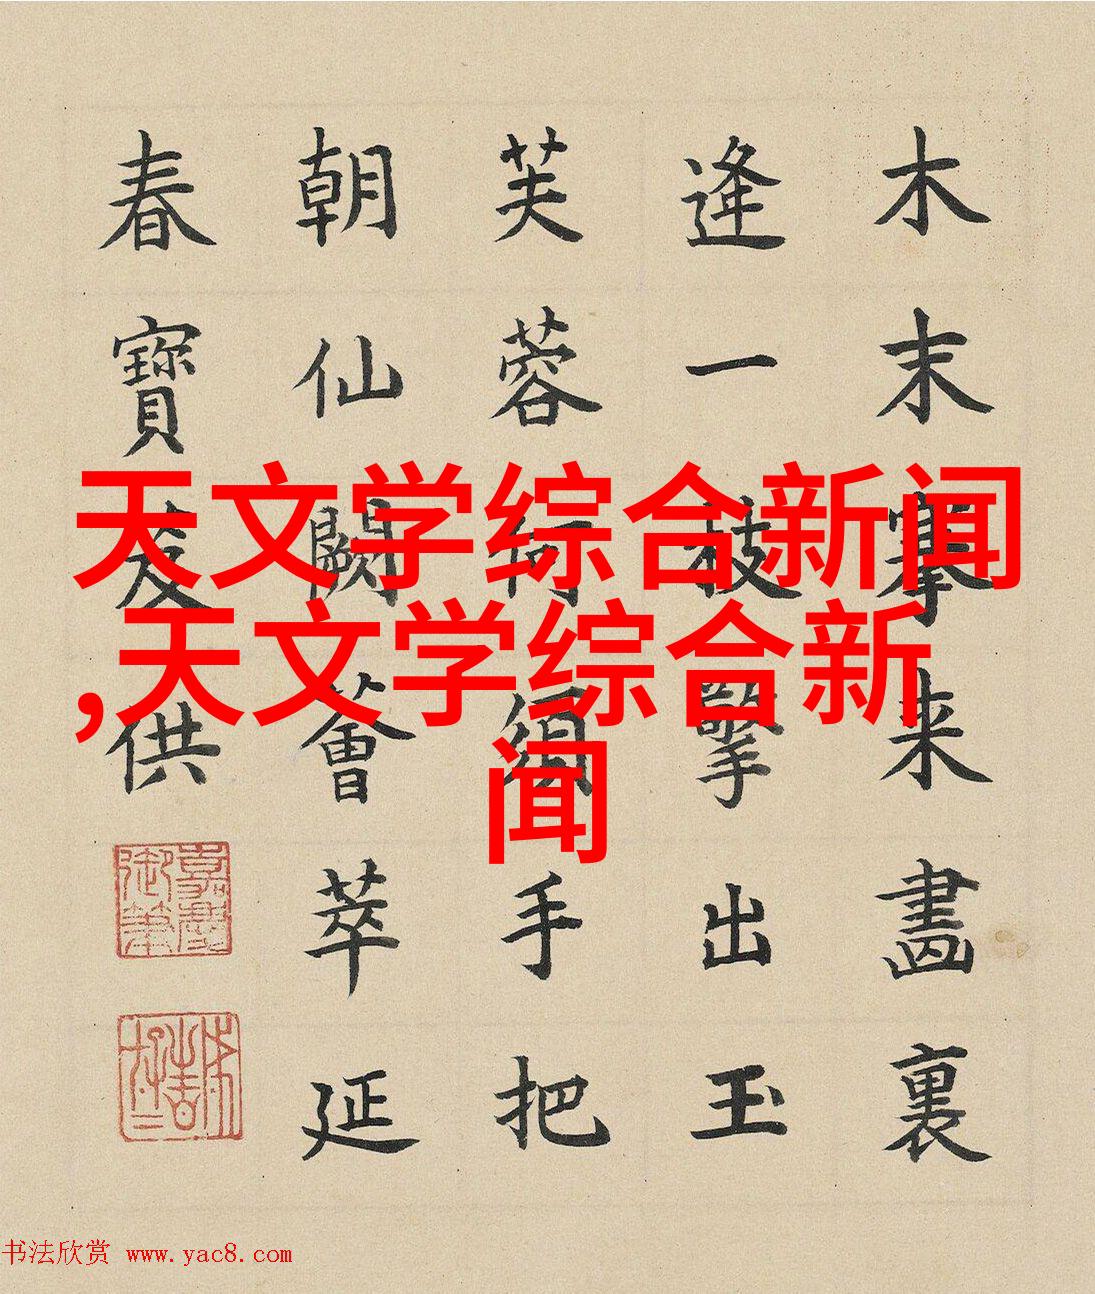 天文学综合新闻
,天文学综合新
闻
木末搴来畫裏
逢一枝擎出玉
芙蓉手把
朝仙闕薈萃延
春寶笈供
嘉慶御筆
书法欣赏 www.yac8.com